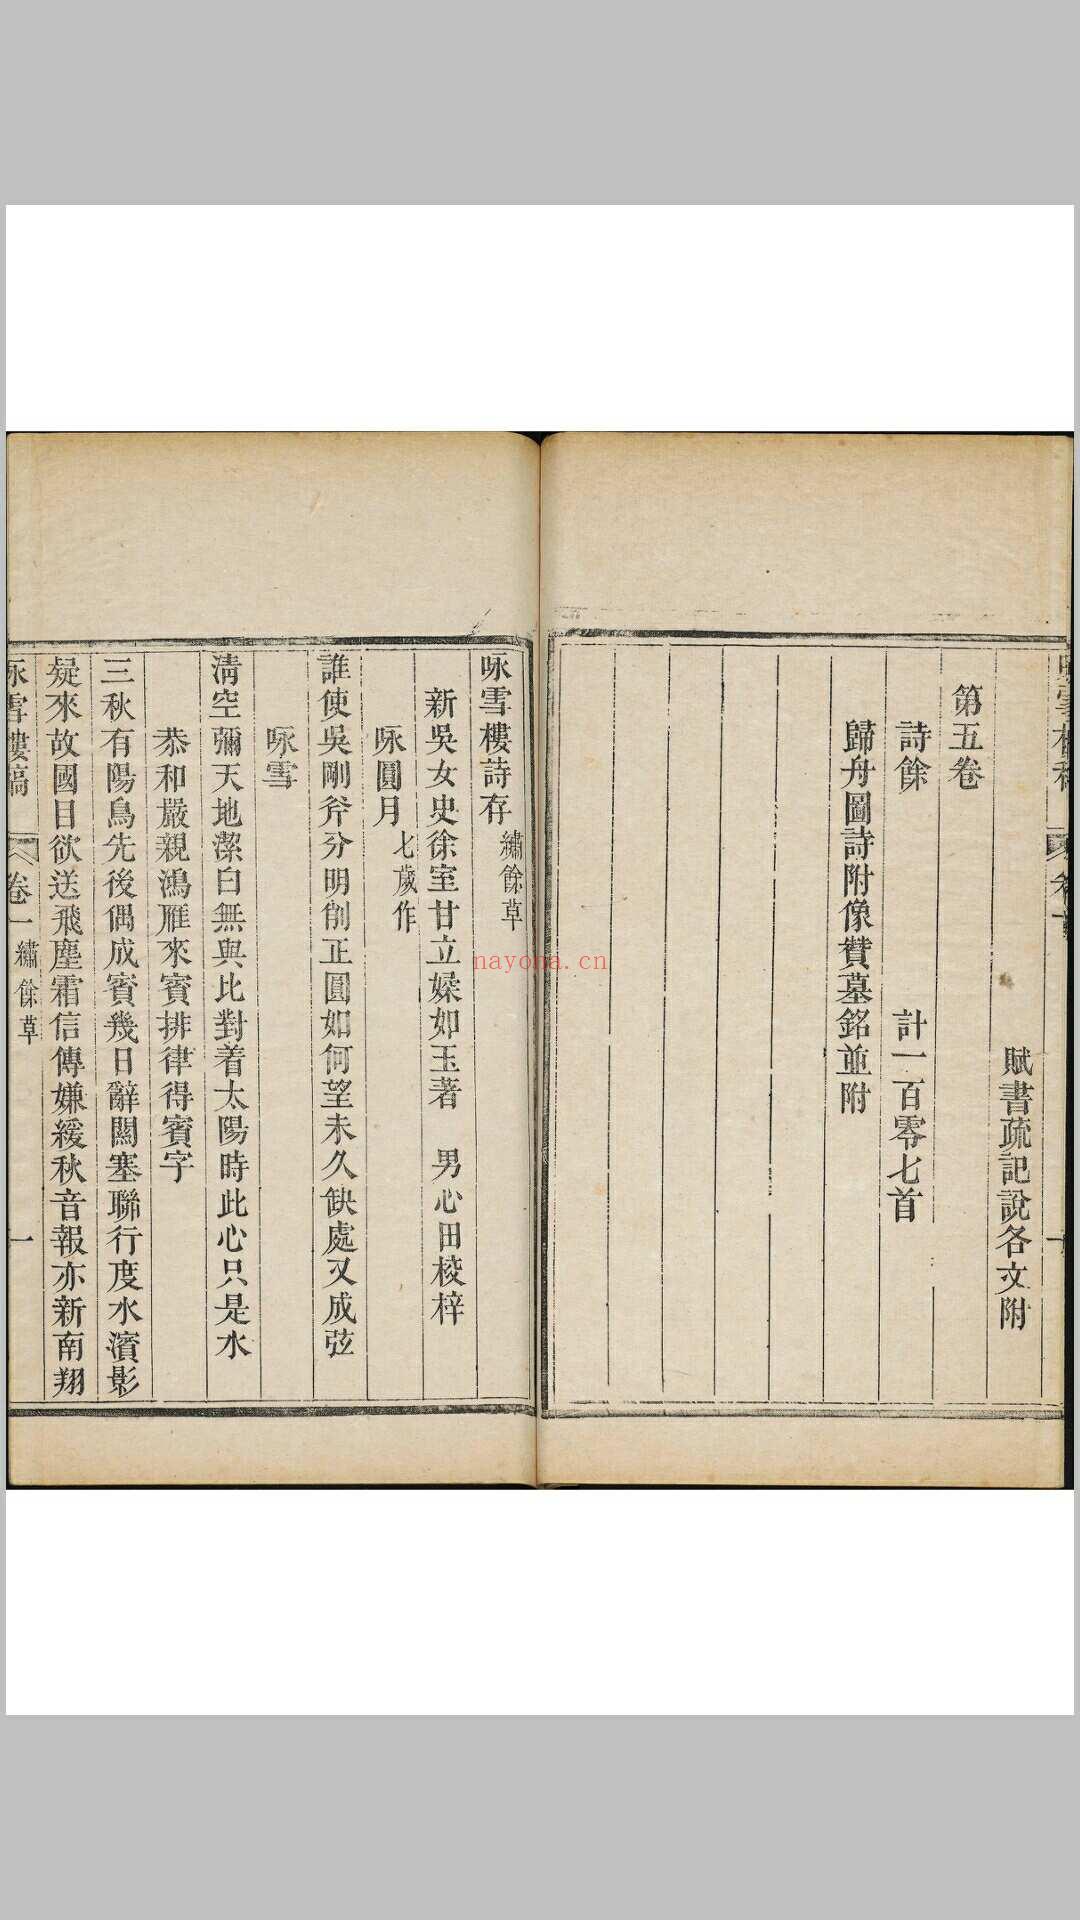 賦書疏記說各文附
第五卷
詩餘　計一百零七首
歸舟圖詩附像贊墓銘並附
咏雪樓詩存 繡餘草
新吳女史徐室甘立媃如玉著　男心田校梓
咏圓月 七歲作
誰使吳剛斧分明削正圓如何望未久缺處又成弦
咏雪
清空彌天地潔白無與比對着太陽時此心只是水
恭和嚴親鴻雁來賓排律得賓字
三秋有陽鳥先後偶成賓幾日辭關塞聯行度水濱影
疑來故國目欲送飛塵霜信傳嫌緩秋音報亦新南翔
咏雪樓稿 卷一 繡餘草 一
nayona.cn